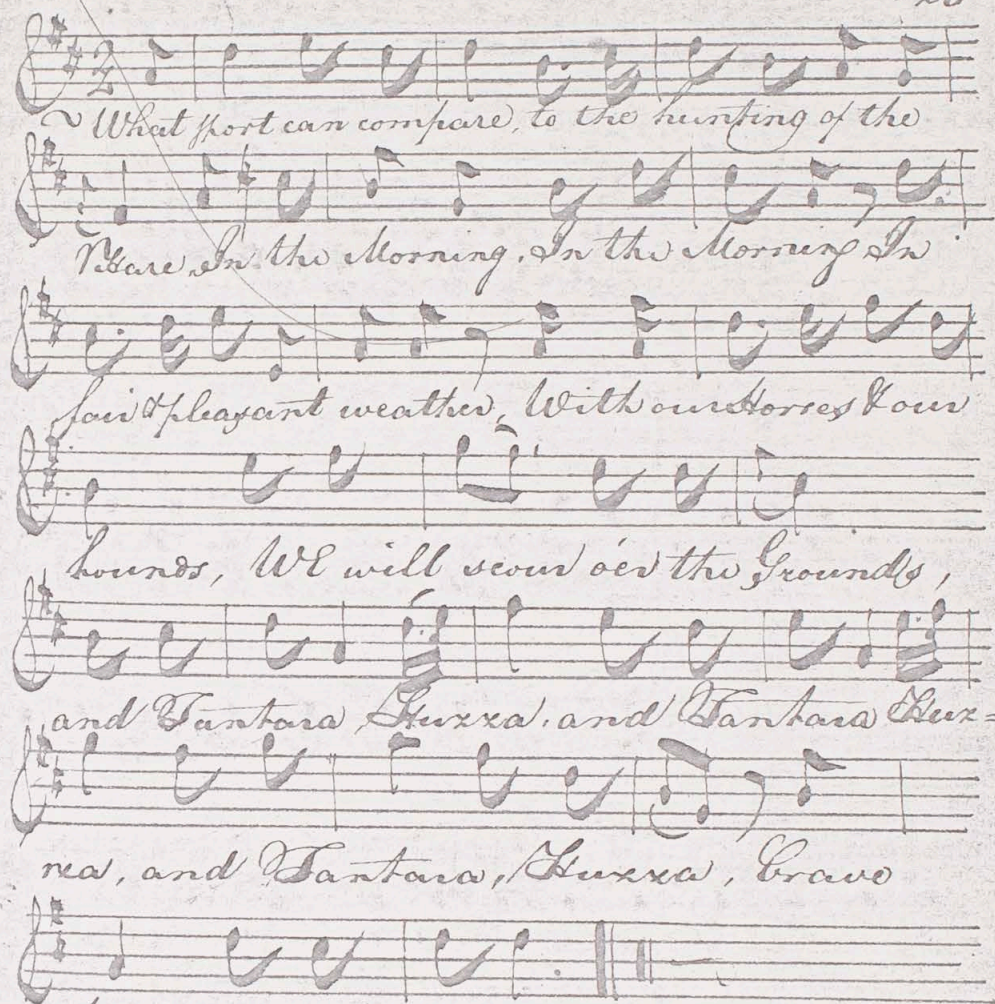 What sport can compare, to the hunting of the
Hare In the Morning, In the Morning In
fair & pleasant weather, With our Horses & our
hounds, WE will scour o'er the Grounds,
and Tantara Huzza, and Tantara Huz=
za, and Tantara, Huzza, brave